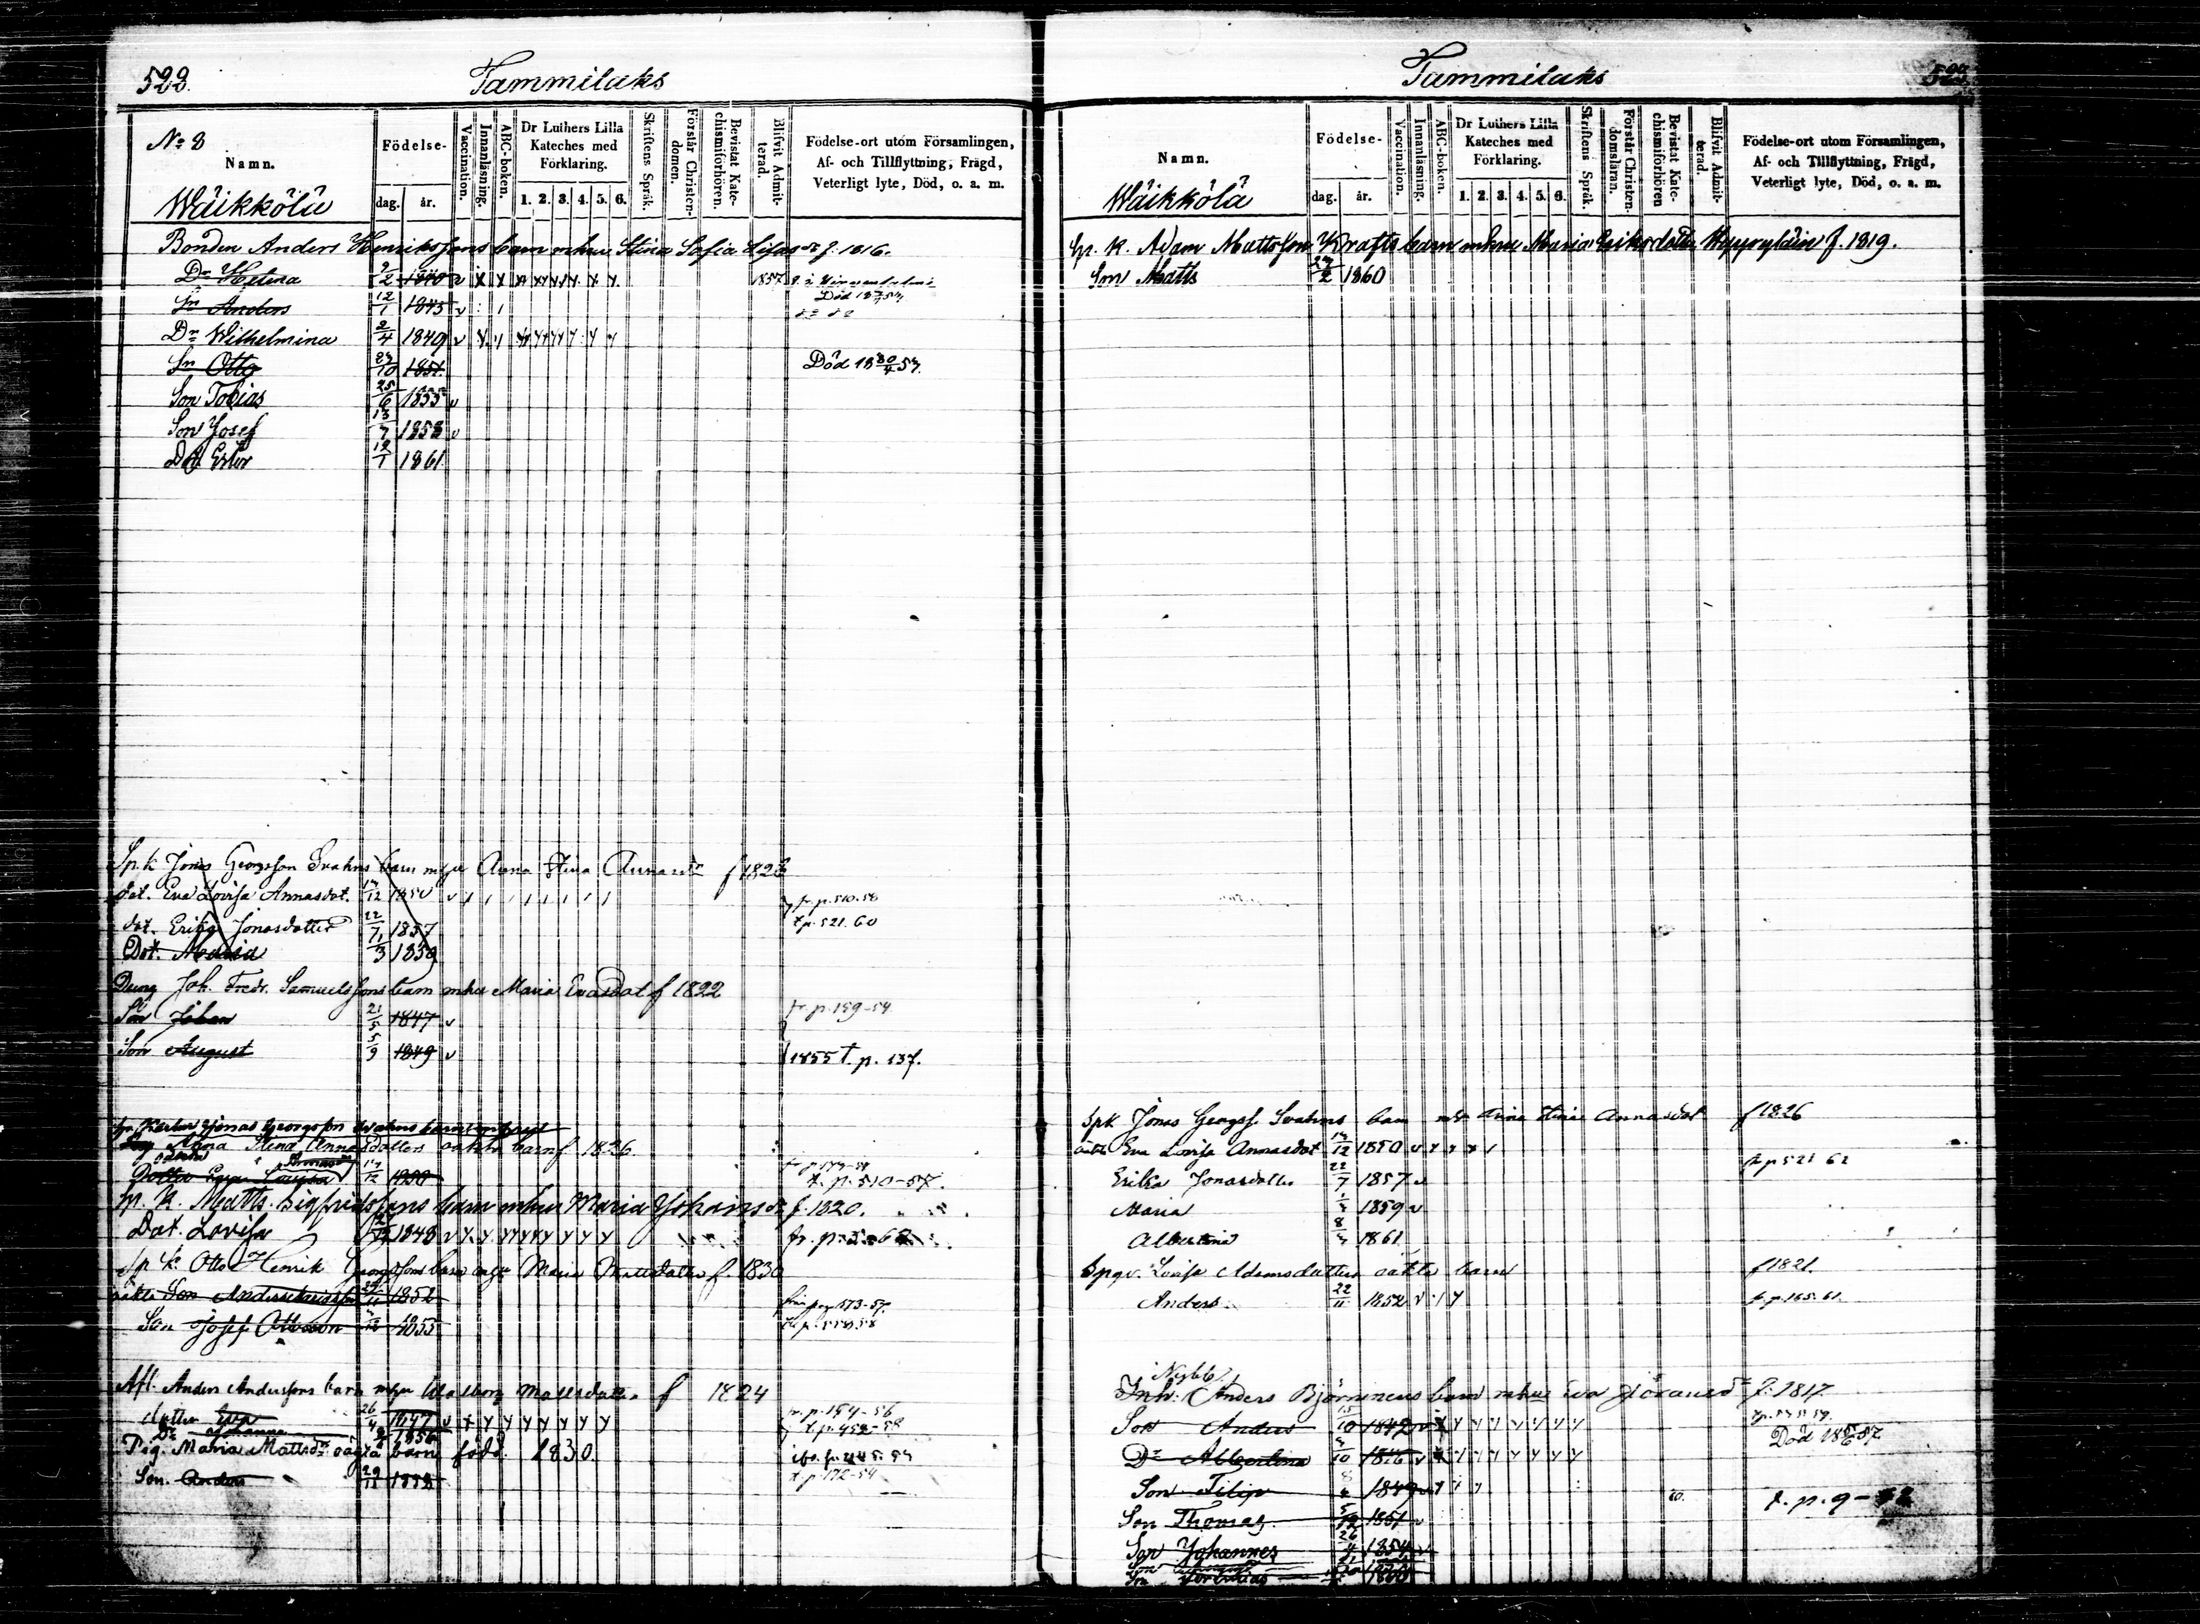 522.
Tammilaks
No 8
Namn.
Födelse-
dag. år.
Vaccination.
Innanläsning.
ABC-boken.
Dr Luthers Lilla Kateches med Förklaring.
1. 2. 3. 4. 5. 6.
Skriftens Språk.
Förstår Christendomen.
Bevistat Katechismiförhören
Blifvit Admitterad.
Födelse-ort utom Församlingen,
Af- och Tillflyttning, Frägd,
Veterligt lyte, Död, o. a. m.
Wäikkölä
Bonden Anders Henrikssons barn mhu Stina Sofia f. 1816.
Dr Helena 9/2 1840 1857
Sn Anders 12/1 1845
Dr Wilhelmina 2/4 1849
Sn Otto 24/10 1851 Död 18 30/4 57.
Son Tobias 25/6 1855
Son Josef 13/7 1858
Dot. Ester 12/1 1861
Sp. k Jonas Georgsson Svahns barn mhu Anna Stina Annasdr f 1826
dot. Eva Lovisa Annasdot. 14/12 1850 fr. p. 510. 58
dot. Erika Jonasdotter 22/7 1857 t. p. 521. 60
Dot. Maria 1/3 1859
Dreng Joh. Fredr. Samuelssons barn mhu Maria Evasdot f 1822
Son Johan 21/5 1847 fr. p. 159-54
Son August 5/9 1849 1855 t. p. 137.
Jonas Georgsson Svahns barn
Anna Stina Annasdotters oäkta barn f 1826
Dotter Eva Lovisa 14/12 1850 t. p. 510-57.
Sp. K. Matts Sigfridssons barn mhu Maria Johansdr f. 1820.
Dot. Lovisa 1848
Sp K. Otto Henrik Georgssons barn mhu Maria Mattsdotter f. 1830
oäkta Son Anders 22/11 1852 från pag 173-57.
Son Josef Ottosson 1855
Afl. Anders Anderssons barn mhu Walborg Mattsdotter f 1824
dotter Eva 26/4 1847 fr. p. 154-56
Dr Johanna 1856 t. p. 452-58
Pig. Maria Mattsdr oägta barn född. 1830.
Son. Anders 22/11 1852 t. p. 172-54
Tammilaks
523.
Namn.
Födelse-
dag. år.
Vaccination.
Innanläsning.
ABC-boken.
Dr Luthers Lilla Kateches med Förklaring.
1. 2. 3. 4. 5. 6.
Skriftens Språk.
Förstår Christendomsläran.
Bevistat Katechismiförhören
Blifvit Admitterad.
Födelse-ort utom Församlingen,
Af- och Tillflyttning, Frägd,
Veterligt lyte, Död, o. a. m.
Wäikkölä
Sp. K. Adam Mattsson Krafts barn mhu Maria Eriksdotter f. 1819.
Son Matts 27/2 1860
Spk Jonas Georgs. Svahns barn mhu Anna Stina Annasdot f 1826
oäkta Eva Lovisa Annasdot 14/12 1850
Erika Jonasdotter 22/7 1857 fr p 521 62
Maria 1/3 1859
Albertina 8/4 1861
Spqv. Lovisa Adamsdotters oäkta barn f 1821.
Anders 22/11 1852 fr. p. 165. 61.
Nybb.
Inh: Anders Björninens barn mhu Eva f. 1817
Son Anders 15/10 1842
Dr Albertina 4/10 1846
Son Filip 8/4 1849
Son Thomas 5/12 1851 t. p. 9-
Son Johannes 26/4 1854
Son Jeremias